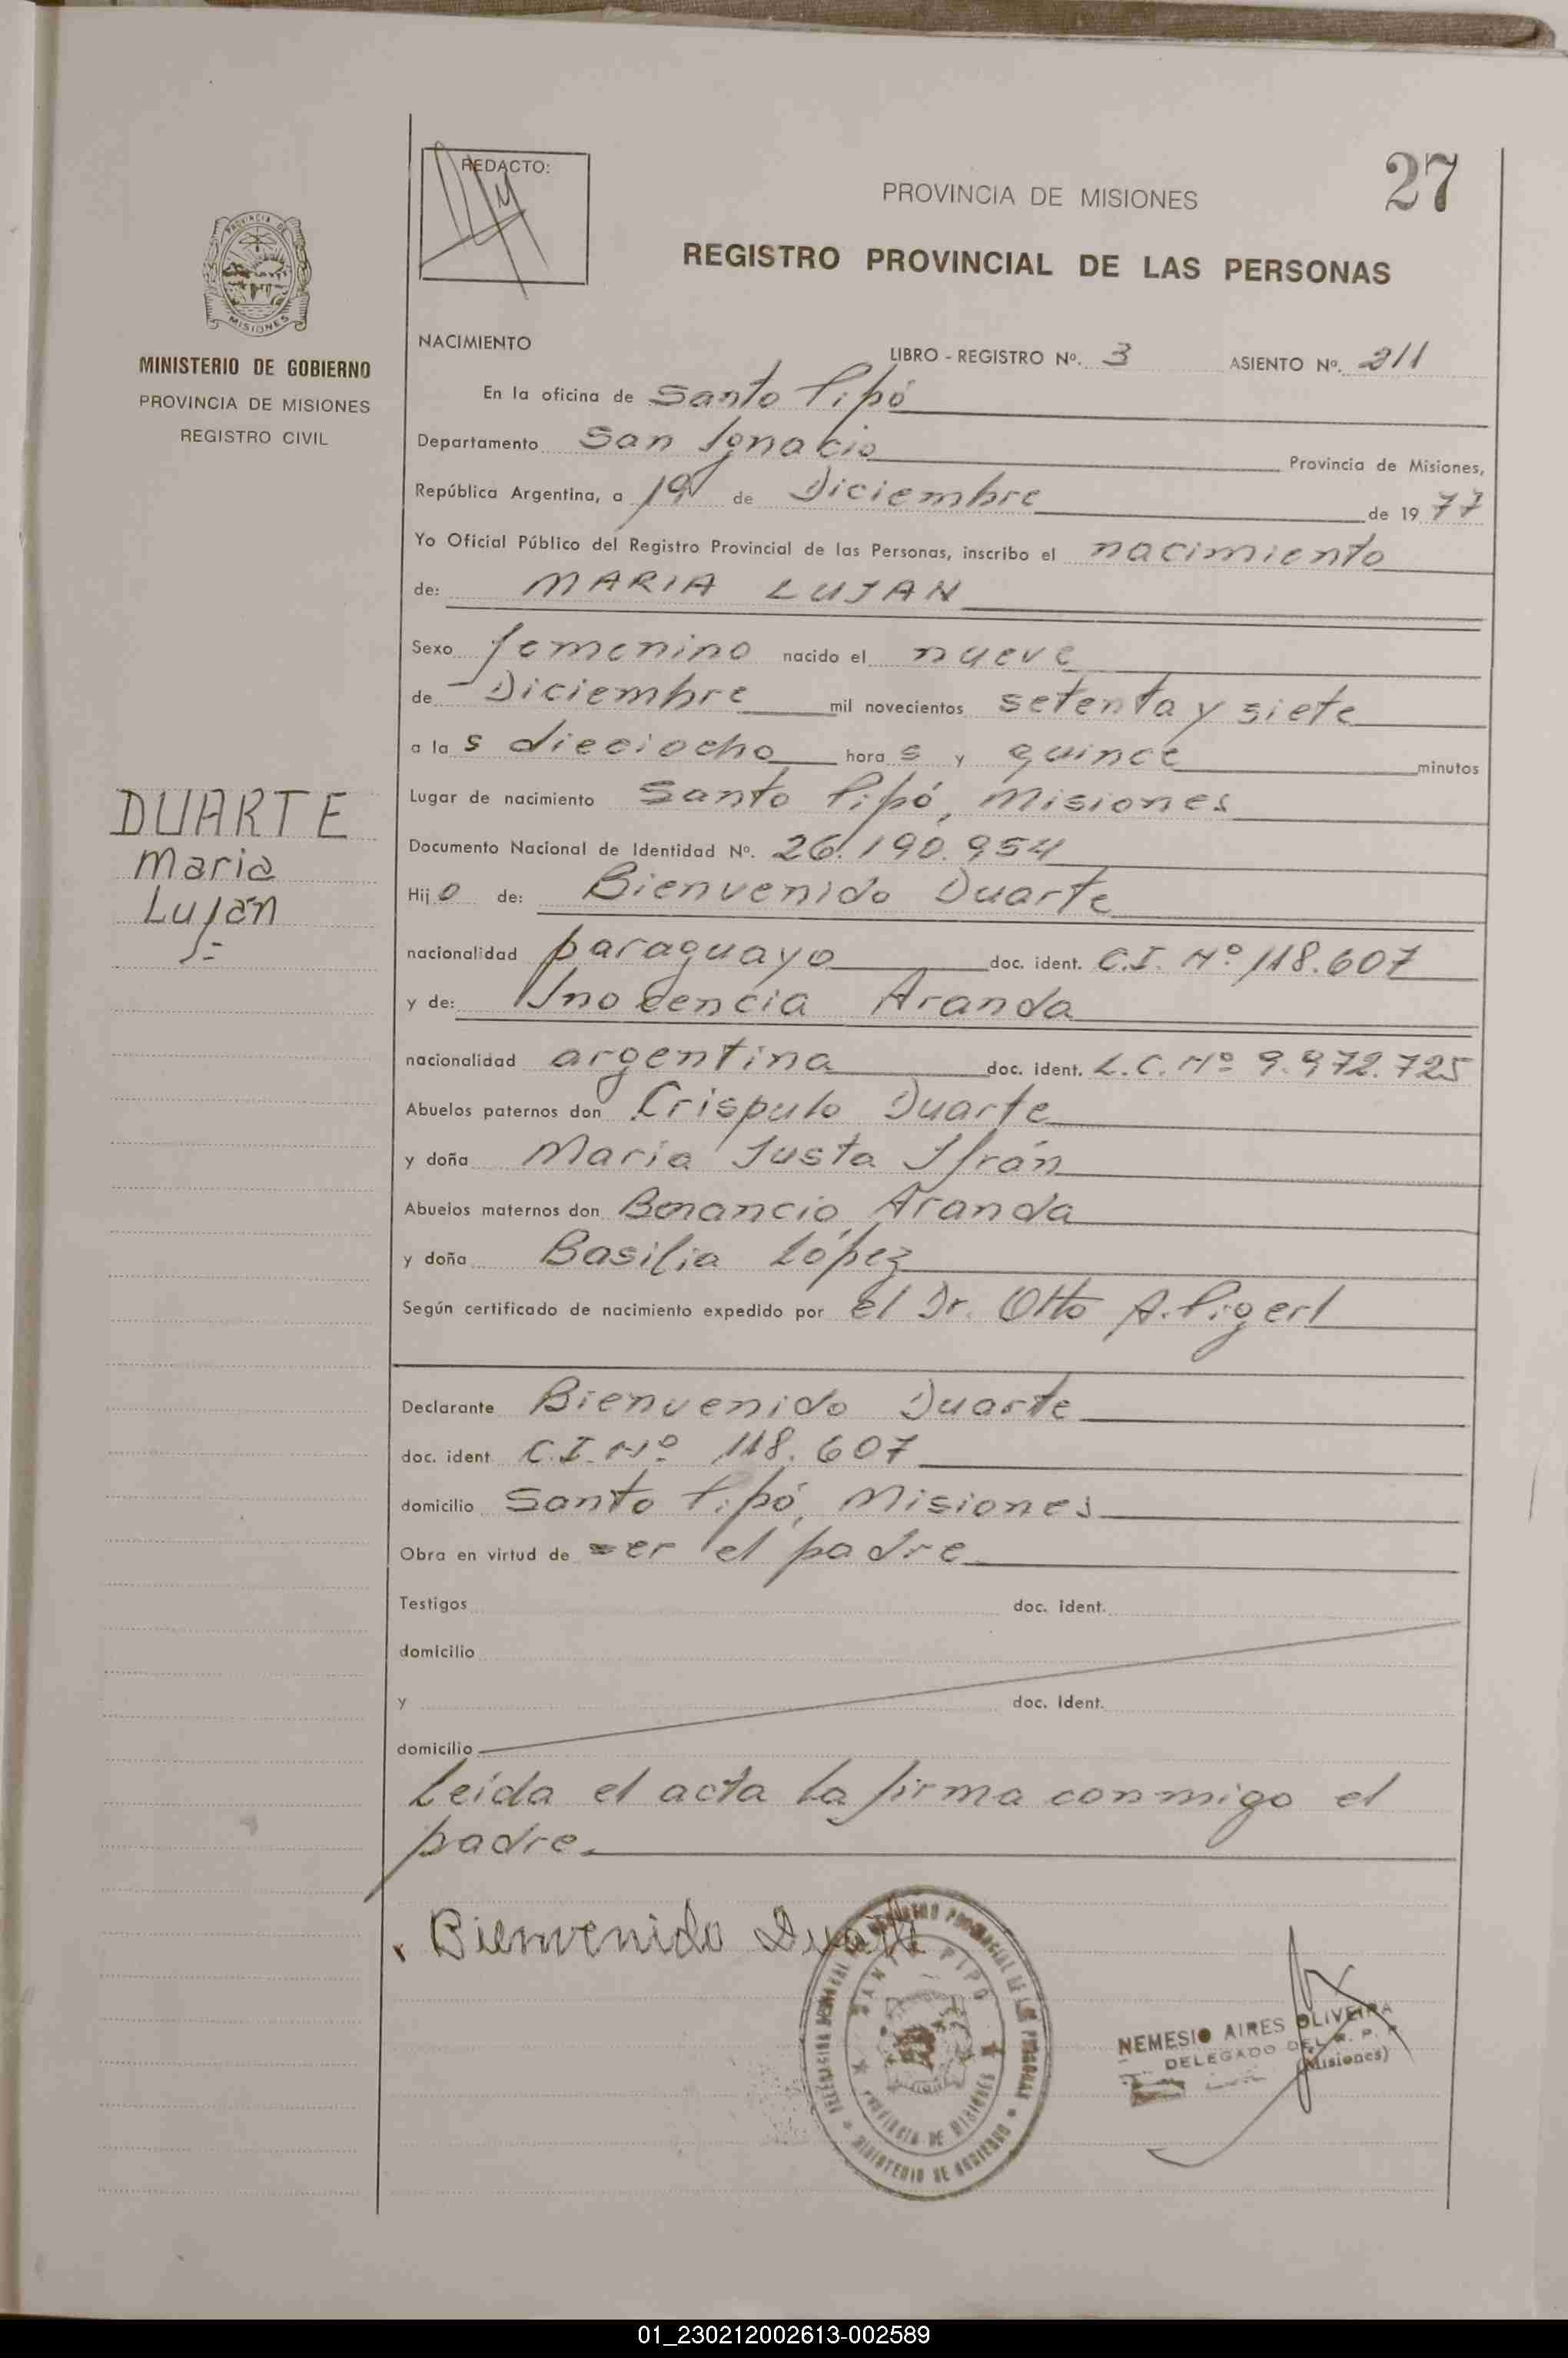 REDACTO:
27
PROVINCIA DE MISIONES
REGISTRO PROVINCIAL DE LAS PERSONAS
PROVINCIA DE
MISIONES
MINISTERIO DE GOBIERNO
PROVINCIA DE MISIONES
REGISTRO CIVIL
DUARTE
Maria
Luján
NACIMIENTO
LIBRO - REGISTRO Nº. 3 ASIENTO Nº. 211
En la oficina de Santo Pipó
Departamento San Ignacio Provincia de Misiones,
República Argentina, a 19 de Diciembre de 1977
Yo Oficial Público del Registro Provincial de las Personas, inscribo el nacimiento
de: MARIA LUJAN
Sexo femenino nacido el nueve
de Diciembre mil novecientos setenta y siete
a las dieciocho horas y quince minutos
Lugar de nacimiento Santo Pipó, Misiones
Documento Nacional de Identidad Nº. 26.190.954
Hijo de: Bienvenido Duarte
nacionalidad paraguayo doc. ident. C.I. Nº 118.607
y de: Inocencia Aranda
nacionalidad argentina doc. ident. L.C. Nº 9.972.725
Abuelos paternos don Crispulo Duarte
y doña Maria Justa Ifrán
Abuelos maternos don Benancio Aranda
y doña Basilia López
Según certificado de nacimiento expedido por el Dr. Otto A. Pigerl
Declarante Bienvenido Duarte
doc. ident. C.I. Nº 118.607
domicilio Santo Pipó, Misiones
Obra en virtud de ser el padre
Testigos doc. ident.
domicilio
y doc. ident.
domicilio
Leída el acta la firma conmigo el
padre.
Bienvenido Duarte
SANTO PIPO
PROVINCIA DE MISIONES
REGISTRO PROVINCIAL DE LAS PERSONAS
MINISTERIO DE GOBIERNO
NEMESIO AIRES OLIVEIRA
DELEGADO DEL R. P. P.
(Misiones)
01_230212002613-002589